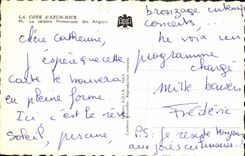 LA COTE D'AZUR-NICE
La célèbre Promenade des Anglais
Chère Catherine,
J'espère que cette
carte te trouvera
en pleine forme.
Ici c'est le rêve
Soleil, piscine,
bronzage intense
concerts...
te voici un
programme
chargé
Mille baisers
Frédéric
P.S: Je reste toujours
aux